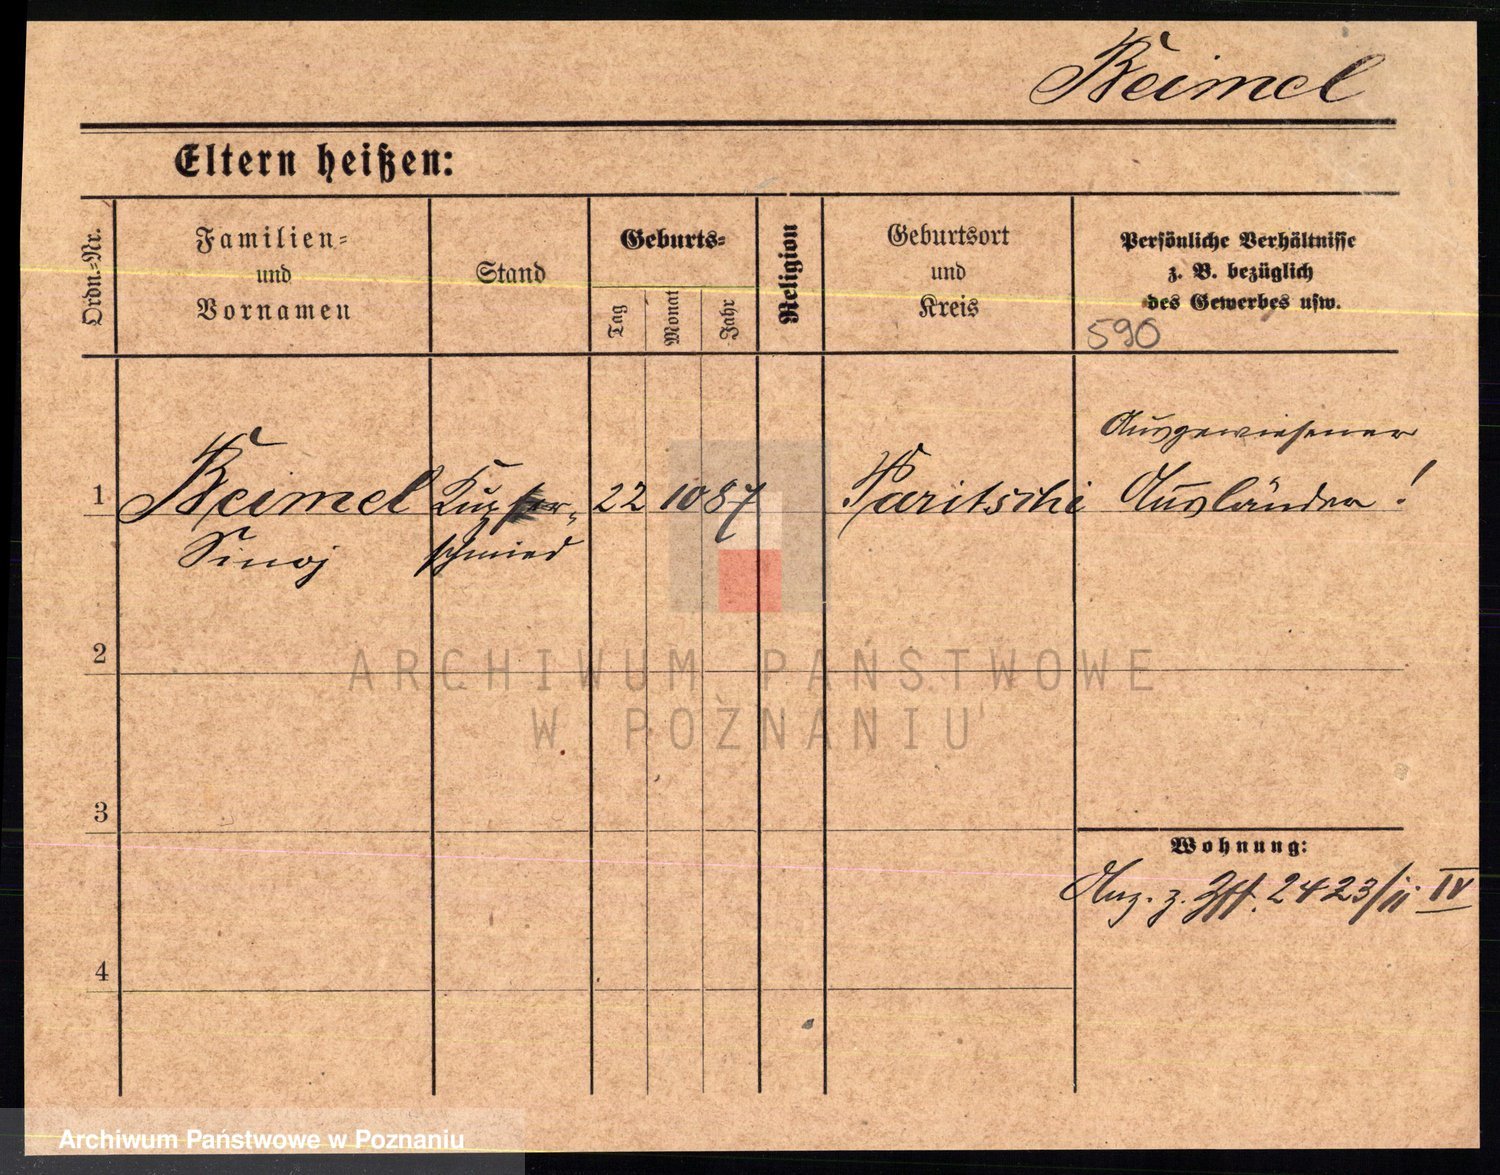 Reimel
Eltern heißen:
Ordn.=Nr.
Familien=
und
Vornamen
Stand
Geburts=
Tag
Monat
Jahr
Religion
Geburtsort
und
Kreis
Persönliche Verhältnisse
z. B. bezüglich
des Gewerbes usw.
590
Ausgewiesener
1 Reimel Kupfer- 22 10 87 Paritschi Ausländer!
Sinoj schmied
2
ARCHIWUM PAŃSTWOWE
W POZNANIU
3
Wohnung:
Anz. z. 2423/11 IV
4
Archiwum Państwowe w Poznaniu